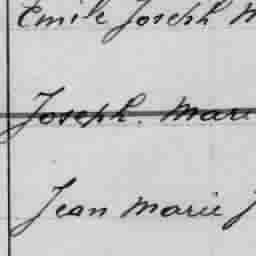 Emile Joseph M
Joseph. Mari
Jean Marie J